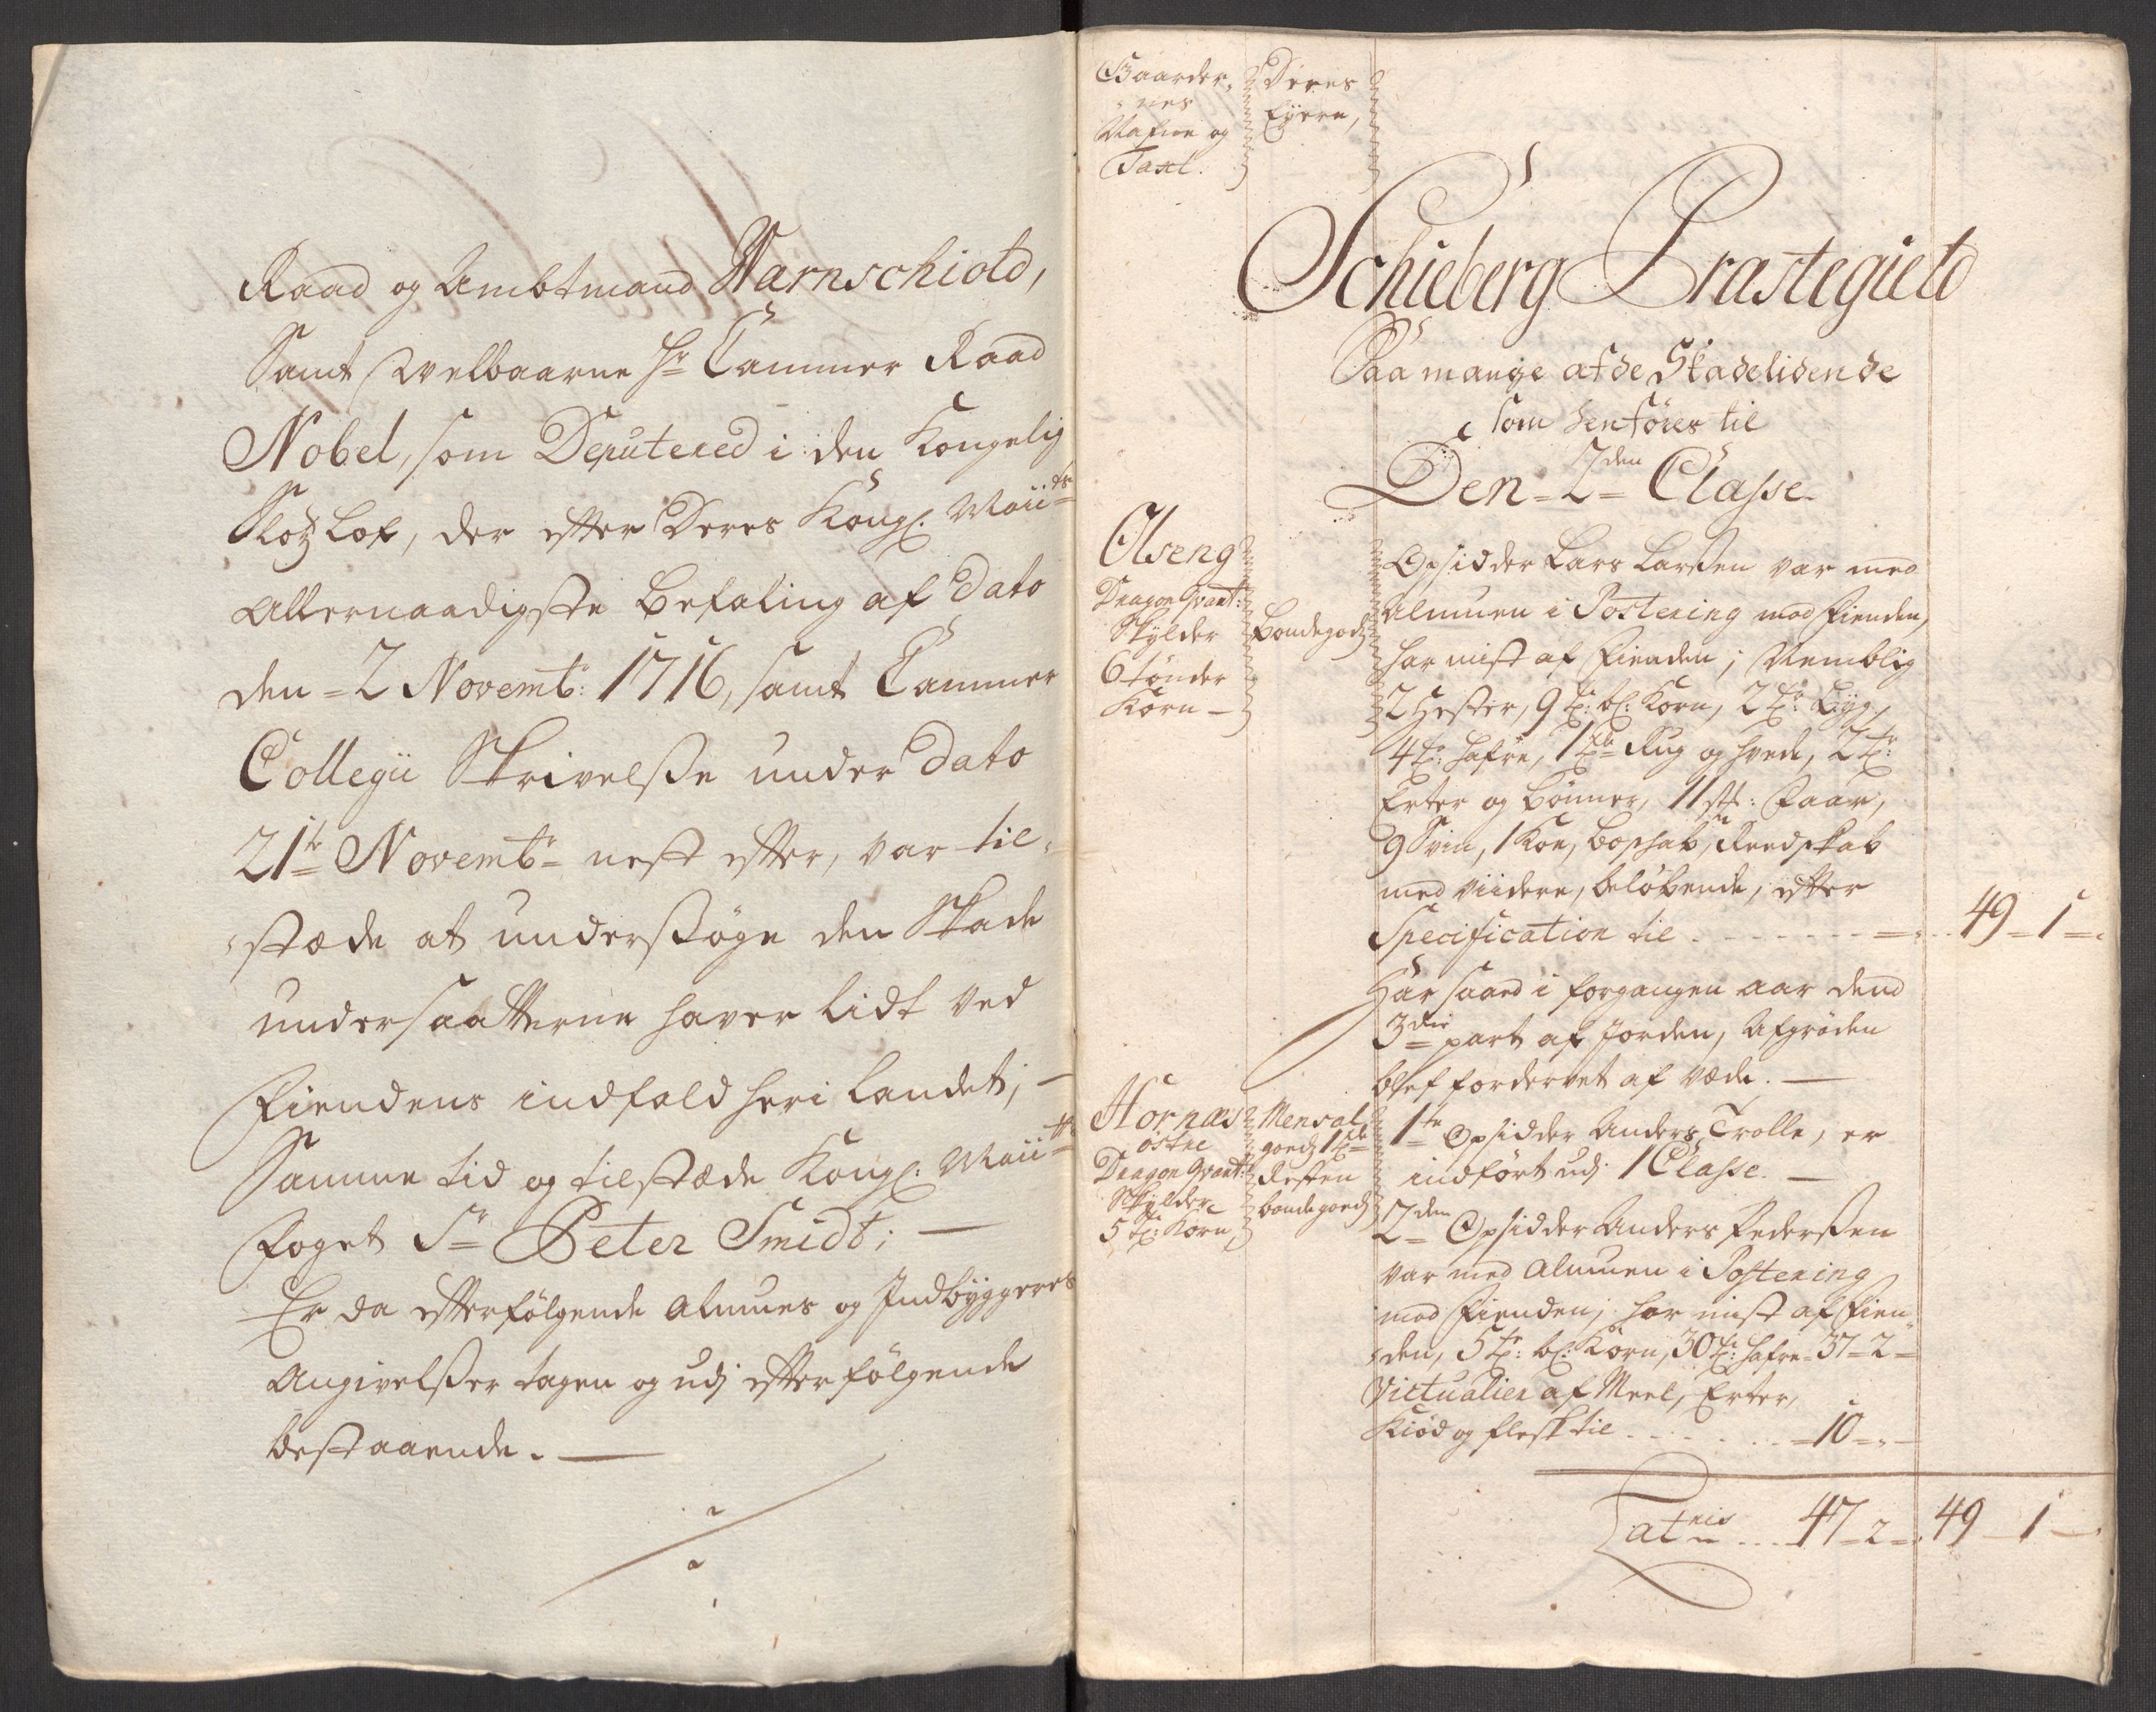 Raad og Ambtmand Warnschiold,
Samt Welbaarne Hr Cammer Raad
Nobel, som Deputered i den Kongelig
Slotz Lof, der efter Deres Kongl. Maiits
Allernaadigste befaling af dato
den 2 Novembr: 1716, samt Cammer
Collegii Skrivelsse under dato
21te Novembr nest efter, var til-
stæde at undersøge den Skade
undersaatterne haver lidt ved
Fiendens indfald her i Landet; —
Samme tid og tilstæde Kongl: Maiits
foget Sr Peter Smidt; —
Er da efterfølgende almues og Indbyggeres
Angivelsser tagen og udj efterfølgende
bestaaende. —
Gaarder-
nes
Nafne og
Taxt.
Deres
Eyere,
Schieberg Præstegield
Saa mange af de Skadelidende
som henføres til
Den 2den Classe.
Olseng
Dragon Qvart:
Skylder
6 tønder
Korn —
Bondegodz
Opsidder Lars Larssen var med
Almuen i Postering mod Fienden,
har mist af Fienden; Nemblig
2 Hester, 9 tr: bl: Korn, 2 tr: Byg,
4 tr: hafre, 1 td Rug og hvede, 2 tr:
Erter og bønner, 11 stk: Faar,
9 Svin, 1 Koe, boschab, Reedskab
med viidere, beløbende, efter
Specification til - - - - - 49 - 1 -
Har saaed i forgangen aar dend
3die part af Jorden, Afgrøden
blef fordervet af væde. —
Hornæs
østre
Dragon Qvart:
Skylder
5 tr: Korn
Mensal
goedz 1 td
Resten
bondegoedz
1te Opsidder Anders Trolle, er
indført udj 1 Classe. —
2den Opsidder Anders Pederssen
var med Almuen i Postering
mod Fienden; har mist af Fien-
den, 5 tr: bl: Korn, 30 tr: hafre - 37 - 2 -
Victualier af Meel, Erter,
Kiød og flesk til - - - - 10 - -
Latris - - - 47 - 2 - 49 - 1 -